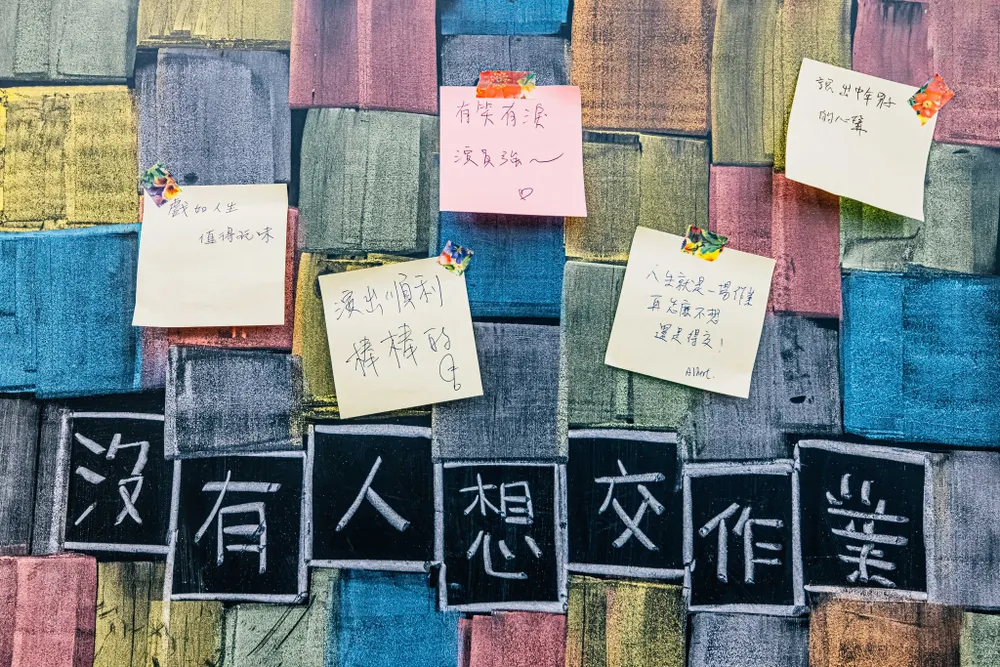 有笑有淚
演員強～
說出中年男子
的心聲
戲如人生
值得玩味
演出順利
棒棒的
人生就是一場作業
再怎麼不想
還是得交！
沒有人想交作業